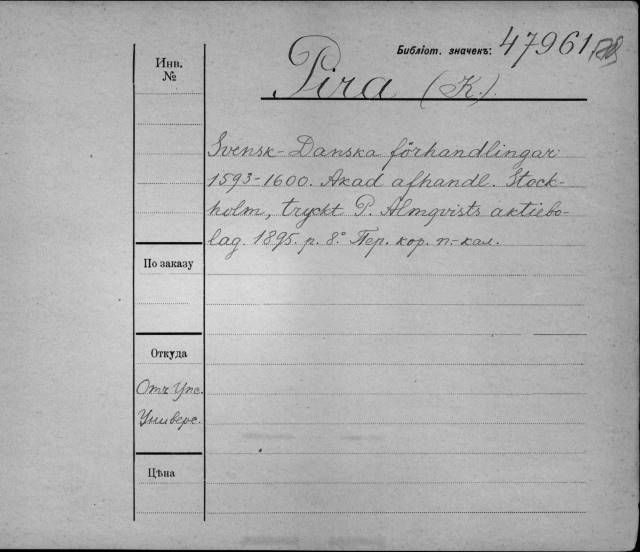 Библіот. значекъ: 47961
Инв.
№
Pira (K.).
Svensk-Danska förhandlingar
1593-1600. Akad afhandl. Stock-
holm, tryckt P. Almqvists aktiebo-
lag. 1895. p. 8° Пер. кор. п.-кал.
По заказу
Откуда
Отъ Упс.
Универс.
Цѣна